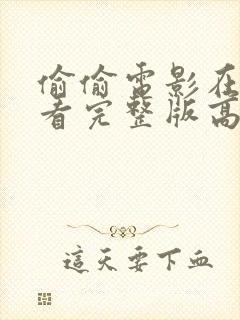 偷偷电影在
看完整版高
這天要下血